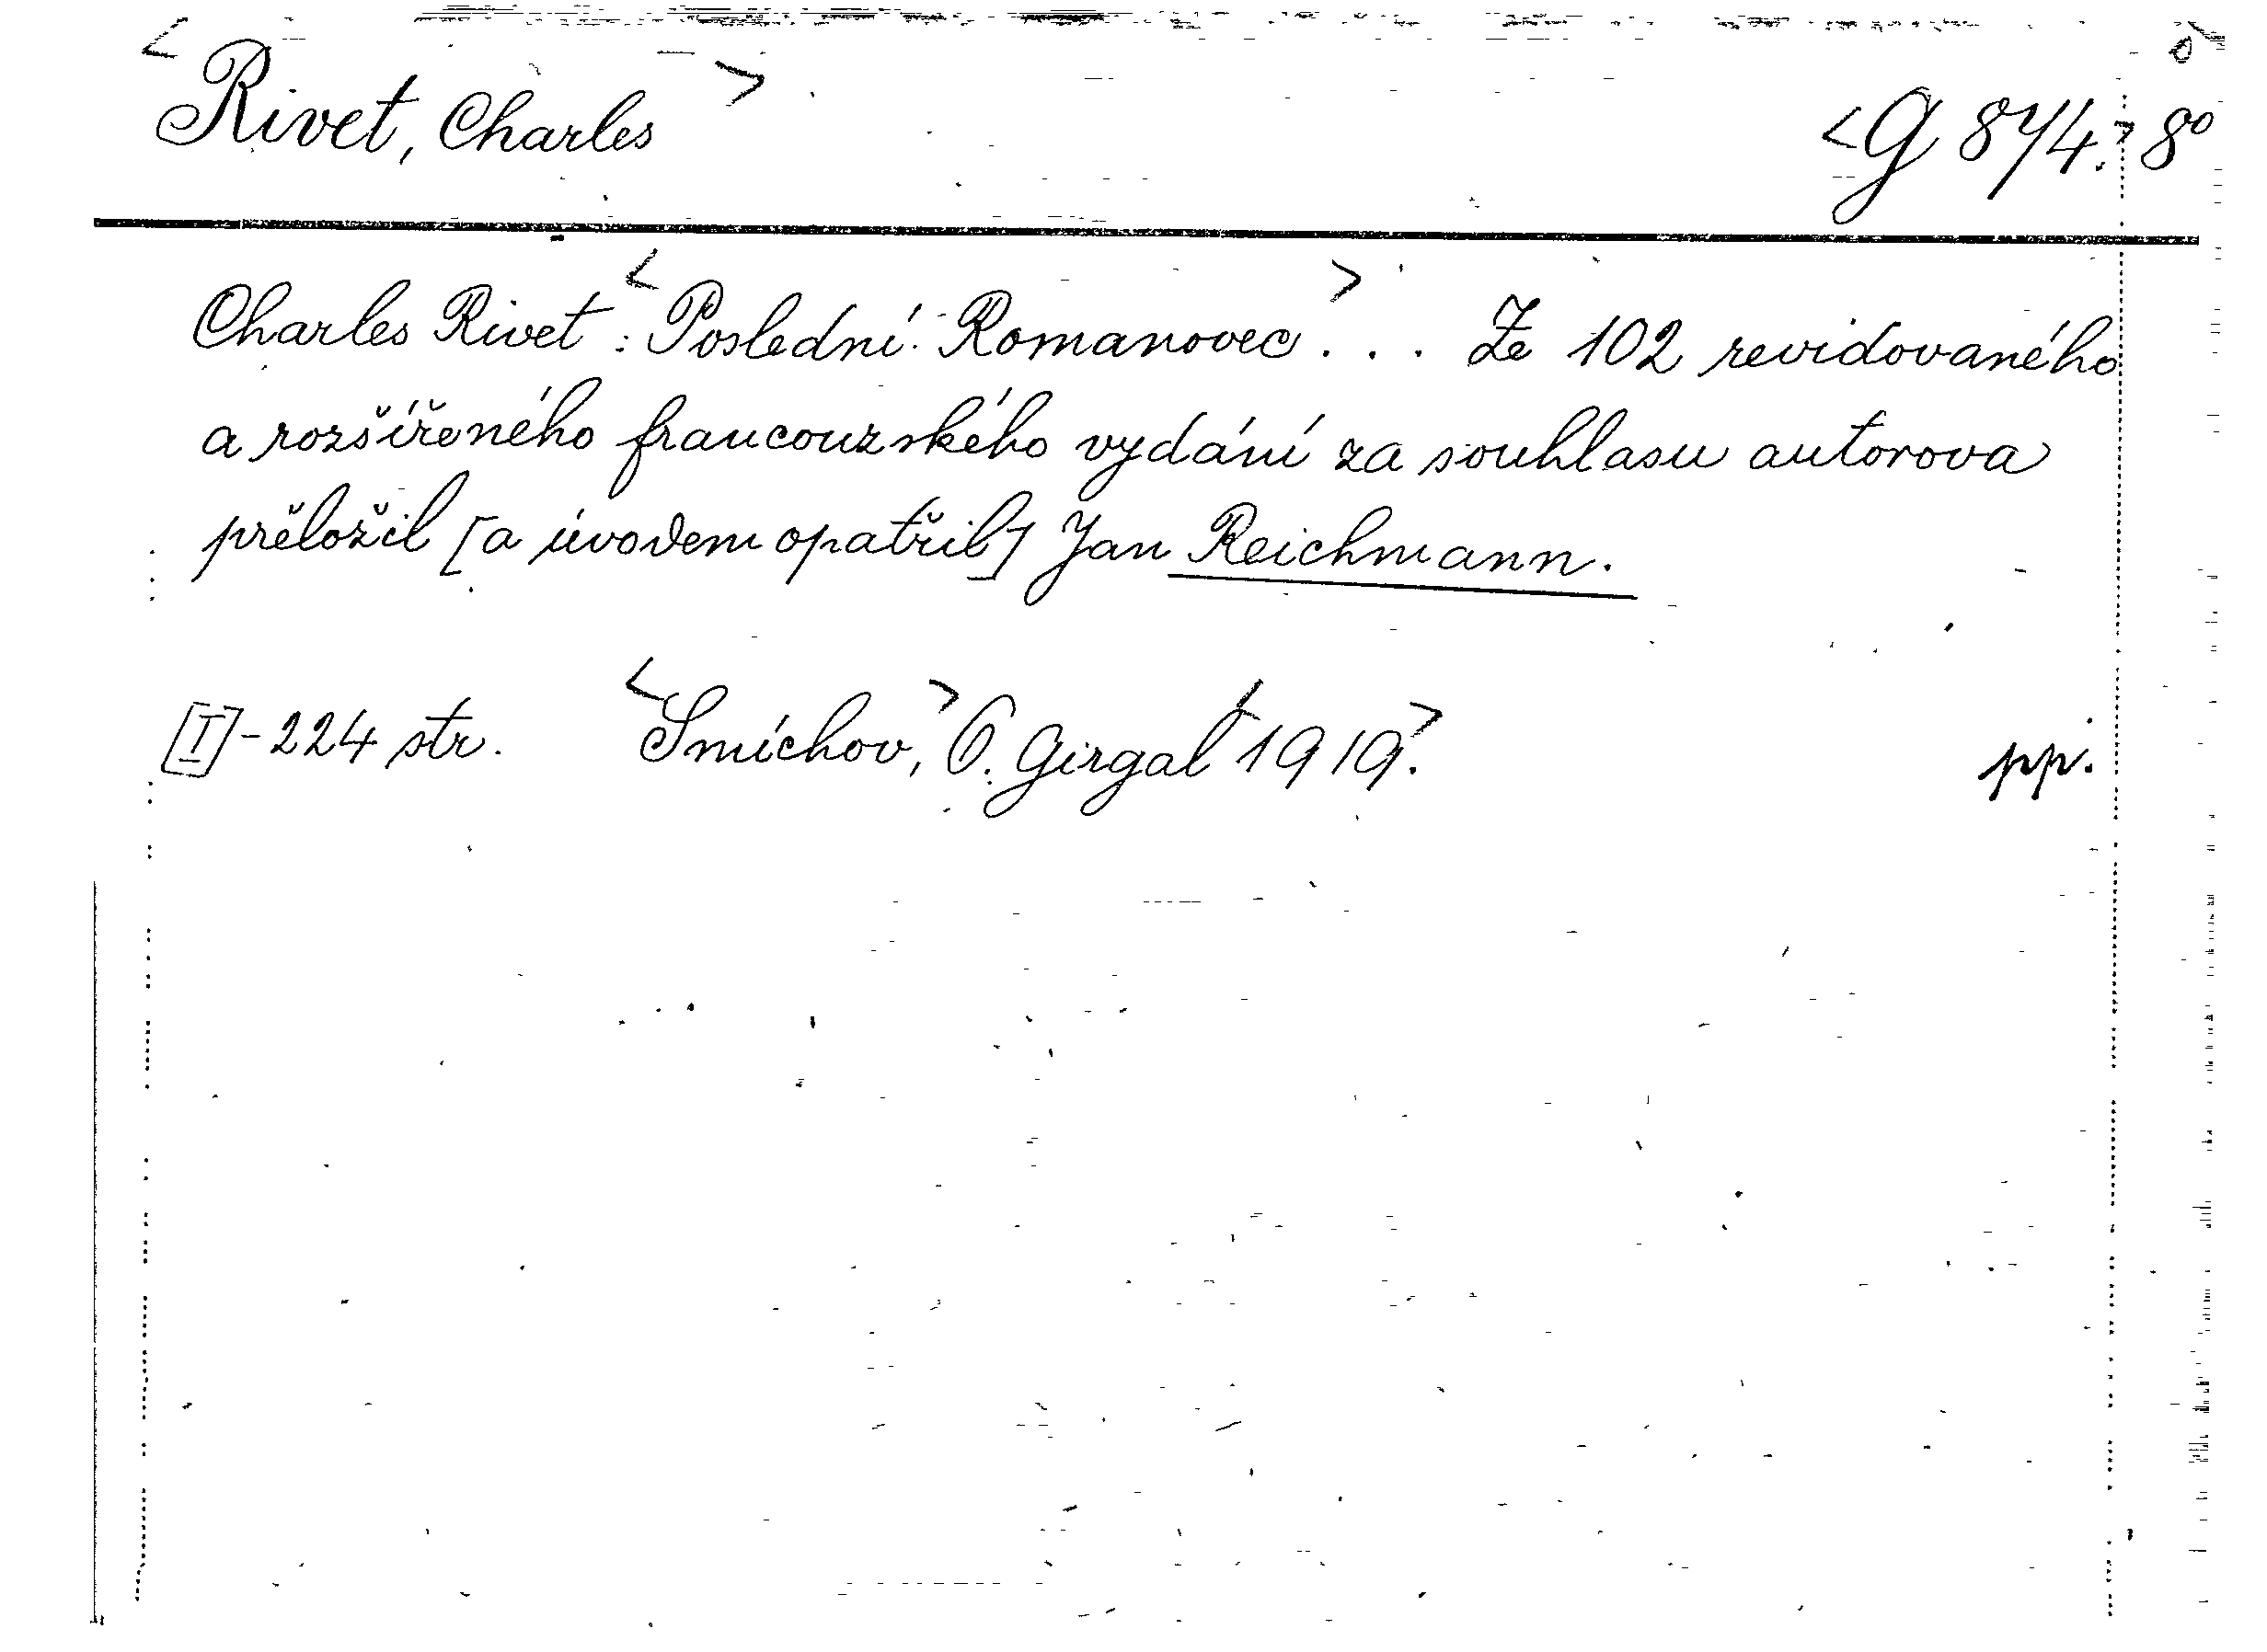 <Rivet, Charles>
<G 874.> 8°
Charles Rivet: <Poslední Romanovec>... Ze 102 revidovaného
a rozšířeného francouzského vydání za souhlasu autorova
přeložil [a úvodem opatřil] Jan Reichmann.
[I]-224 str. <Smíchov,> O. Girgal <1919.>
pp.